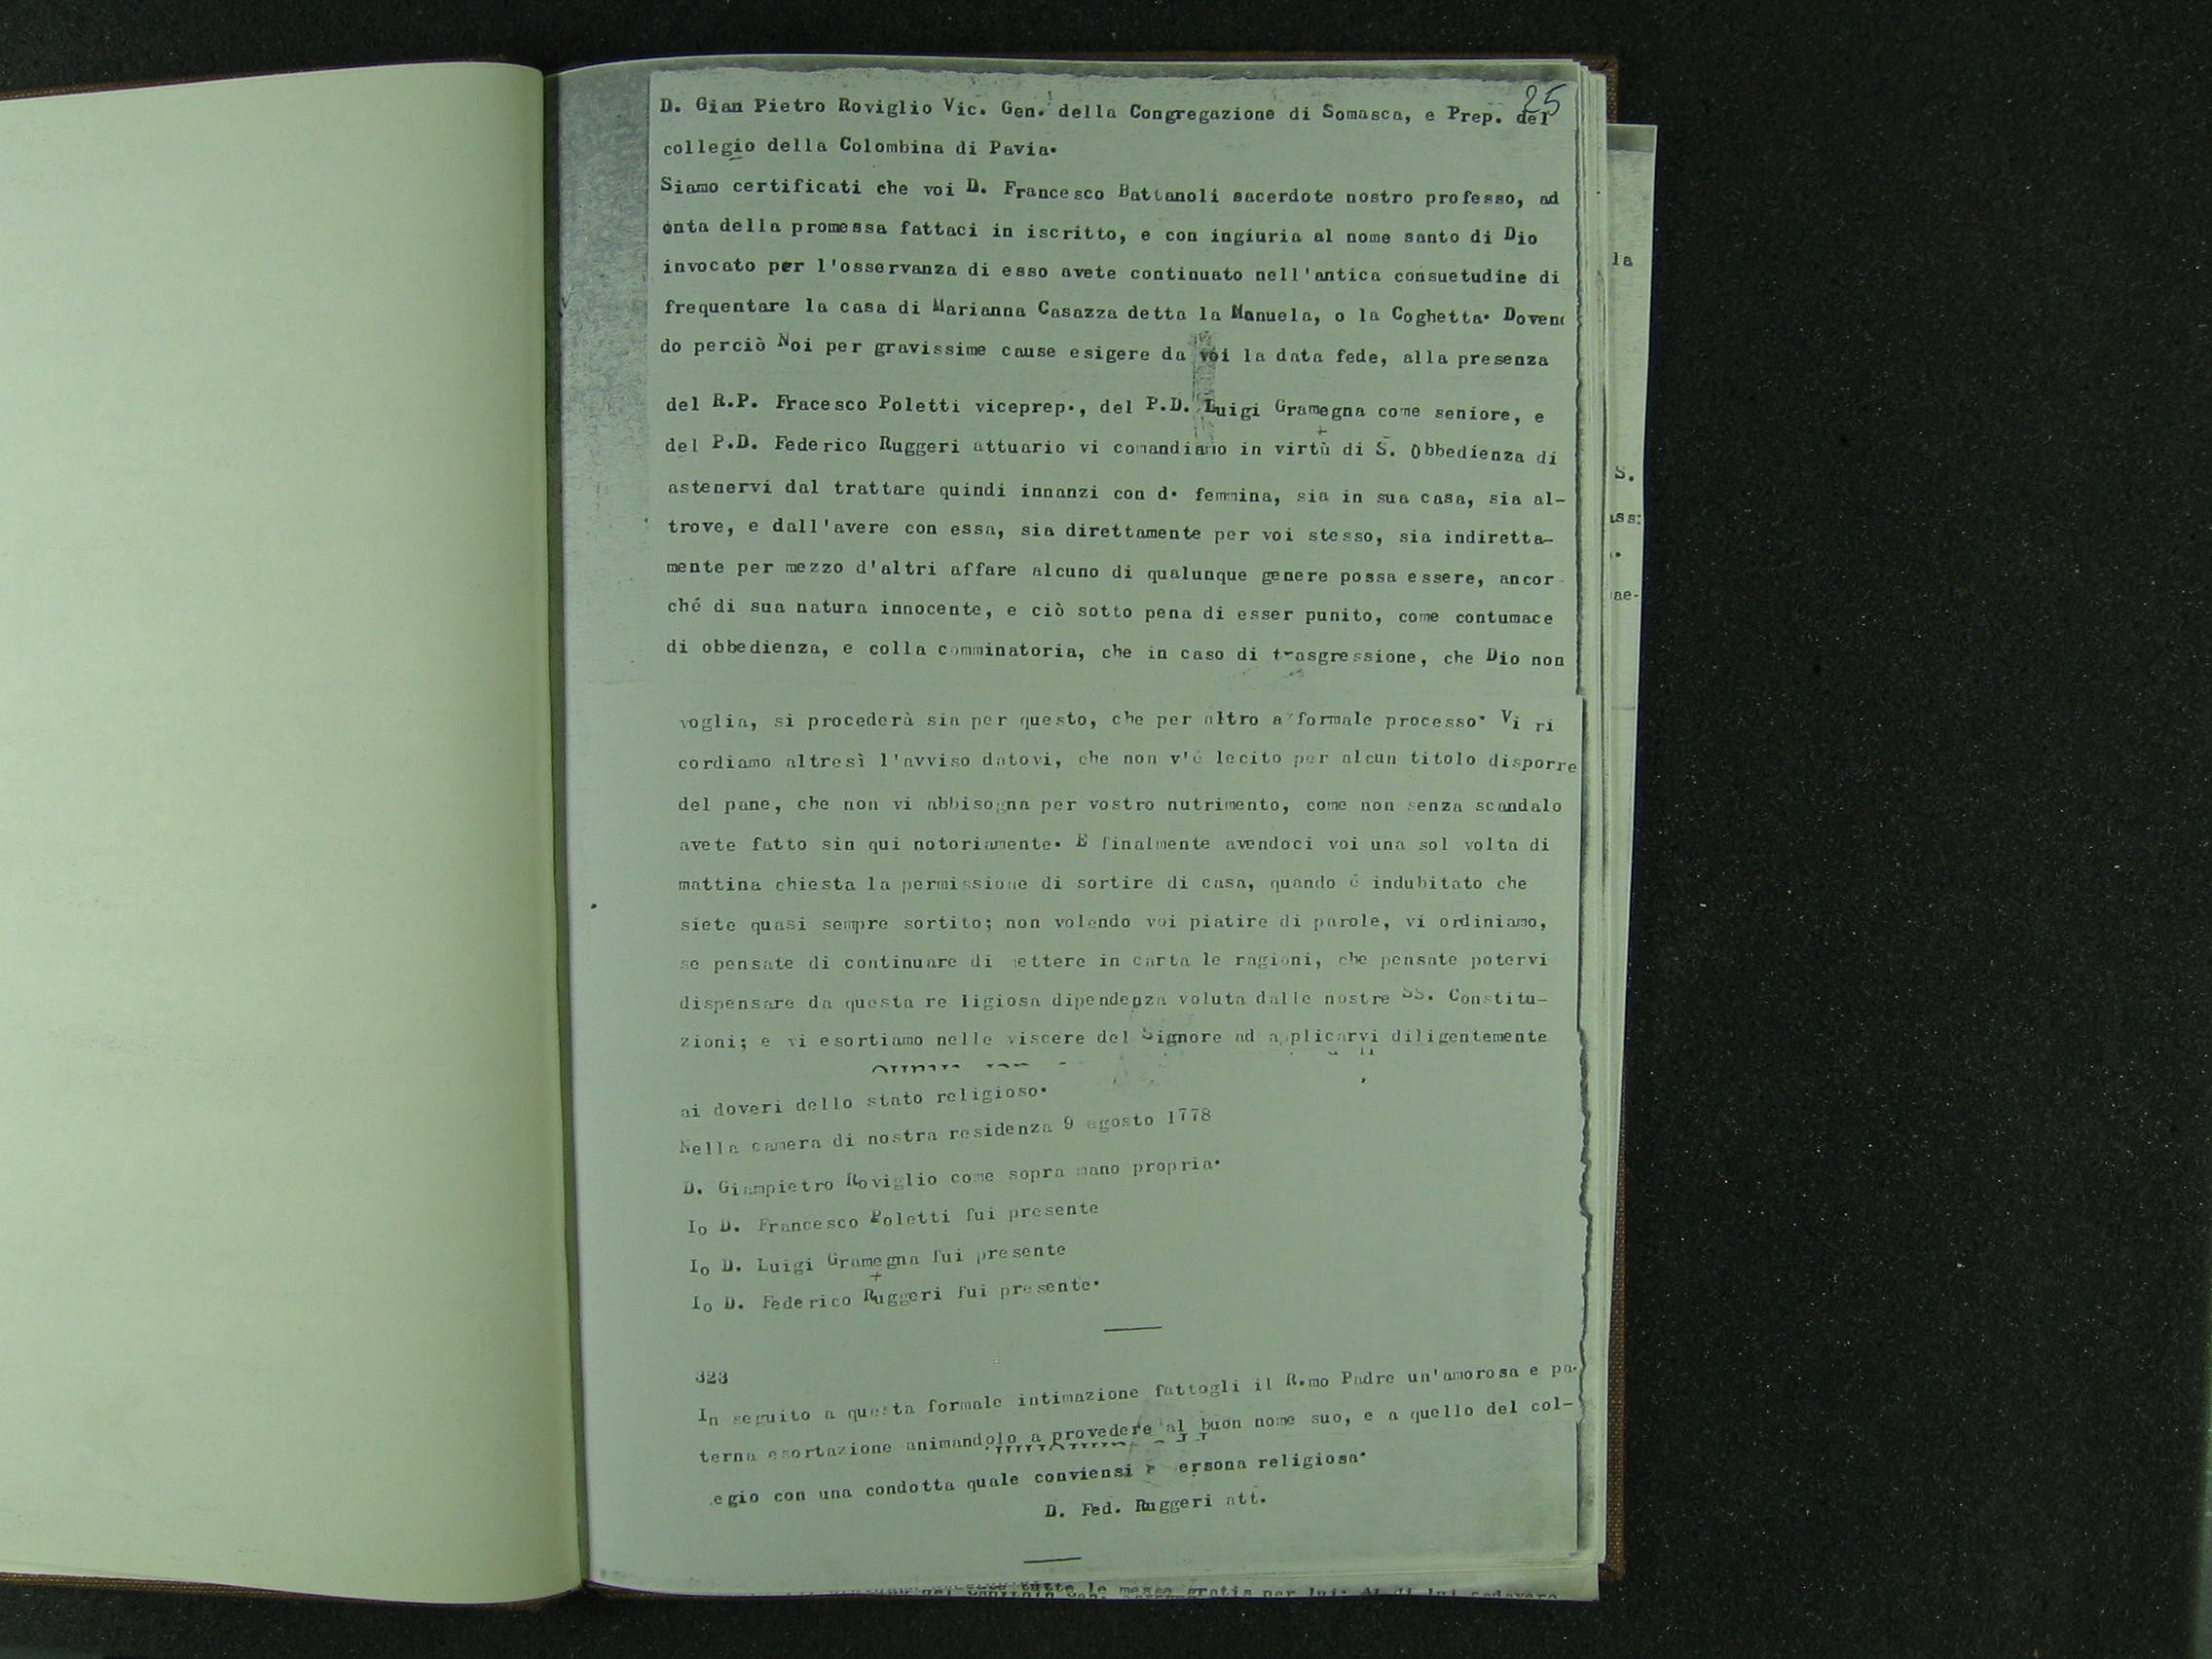 25
D. Gian Pietro Roviglio Vic. Gen. della Congregazione di Somasca, e Prep. del
collegio della Colombina di Pavia.
Siamo certificati che voi D. Francesco Battanoli sacerdote nostro professo, ad
onta della promessa fattaci in iscritto, e con ingiuria al nome santo di Dio
invocato per l'osservanza di esso avete continuato nell'antica consuetudine di
frequentare la casa di Marianna Casazza detta la Manuela, o la Coghetta. Doven
do perciò Noi per gravissime cause esigere da voi la data fede, alla presenza
del R.P. Fracesco Poletti viceprep., del P.D. Luigi Gramegna come seniore, e
del P.D. Federico Ruggeri attuario vi comandiamo in virtù di S. Obbedienza di
astenervi dal trattare quindi innanzi con d. femmina, sia in sua casa, sia al-
trove, e dall'avere con essa, sia direttamente per voi stesso, sia indiretta-
mente per mezzo d'altri affare alcuno di qualunque genere possa essere, ancor
ché di sua natura innocente, e ciò sotto pena di esser punito, come contumace
di obbedienza, e colla comminatoria, che in caso di trasgressione, che Dio non
voglia, si procederà sia per questo, che per altro a formale processo. Vi ri
cordiamo altresì l'avviso datovi, che non v'é lecito per alcun titolo disporre
del pane, che non vi abbisogna per vostro nutrimento, come non senza scandalo
avete fatto sin qui notoriamente. E finalmente avendoci voi una sol volta di
mattina chiesta la permissione di sortire di casa, quando é indubitato che
siete quasi sempre sortito; non volendo voi piatire di parole, vi ordiniamo,
se pensate di continuare di mettere in carta le ragioni, che pensate potervi
dispensare da questa re ligiosa dipendenza voluta dalle nostre SS. Constitu-
zioni; e vi esortiamo nelle viscere del Signore ad applicarvi diligentemente
ai doveri dello stato religioso.
Nella camera di nostra residenza 9 agosto 1778
D. Giampietro Roviglio come sopra mano propria.
Io D. Francesco Poletti fui presente
Io D. Luigi Gramegna fui presente
Io D. Federico Ruggeri fui presente.
323
In seguito a questa formale intimazione fattogli il R.mo Padre un'amorosa e pa-
terna esortazione animandolo a provedere al buon nome suo, e a quello del col-
egio con una condotta quale conviensi p ersona religiosa.
D. Fed. Ruggeri att.
tutte le messe gratis per lui.
la
S.
ass:
ae-